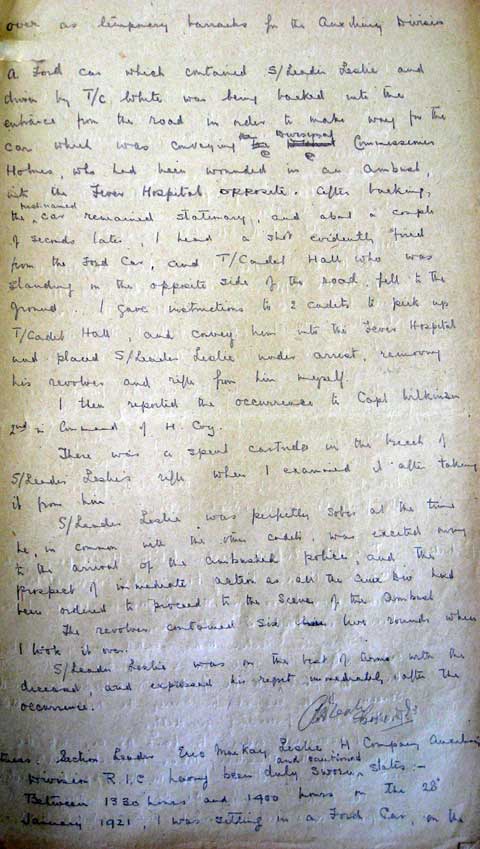 over as temporary barracks for the Auxiliary Division
A Ford car which contained S/Leader Leslie and
driven by T/C White was being backed into the
entrance from the road in order to make way for the
car which was conveying the Divisional Commissioner
Holmes, who had been wounded in an ambush,
into the Fever Hospital opposite. After backing,
the first named car remained stationary, and about a couple
of seconds later, I heard a shot evidently fired
from the Ford Car, and T/Cadet Hall who was
standing on the opposite side of the road fell to the
ground. I gave instructions to 2 cadets to pick up
T/Cadet Hall, and convey him into the Fever Hospital
and placed S/Leader Leslie under arrest, removing
his revolver and rifle from him myself.
I then reported the occurrence to Capt Wilkinson
2nd in Command of H. Coy.
There was a spent cartridge in the breech of
S/Leader Leslie's rifle when I examined it after taking
it from him
S/Leader Leslie was perfectly sober at the time
he, in common with the other cadets was excited owing
to the arrival of the ambushed police, and the
prospect of immediate action as all the Aux Div had
been ordered to proceed to the scene of the Ambush
The revolver contained six live rounds when
I took it over.
S/Leader Leslie was on the best of terms with the
deceased, and expressed his regret immediately after the
occurrence.
Section Leader Eric Mackay Leslie H Company Auxiliary
Division R.I.C having been duly sworn and cautioned states:-
Between 1330 hours and 1400 hours on the 28th
January 1921, I was sitting in a Ford Car, on the